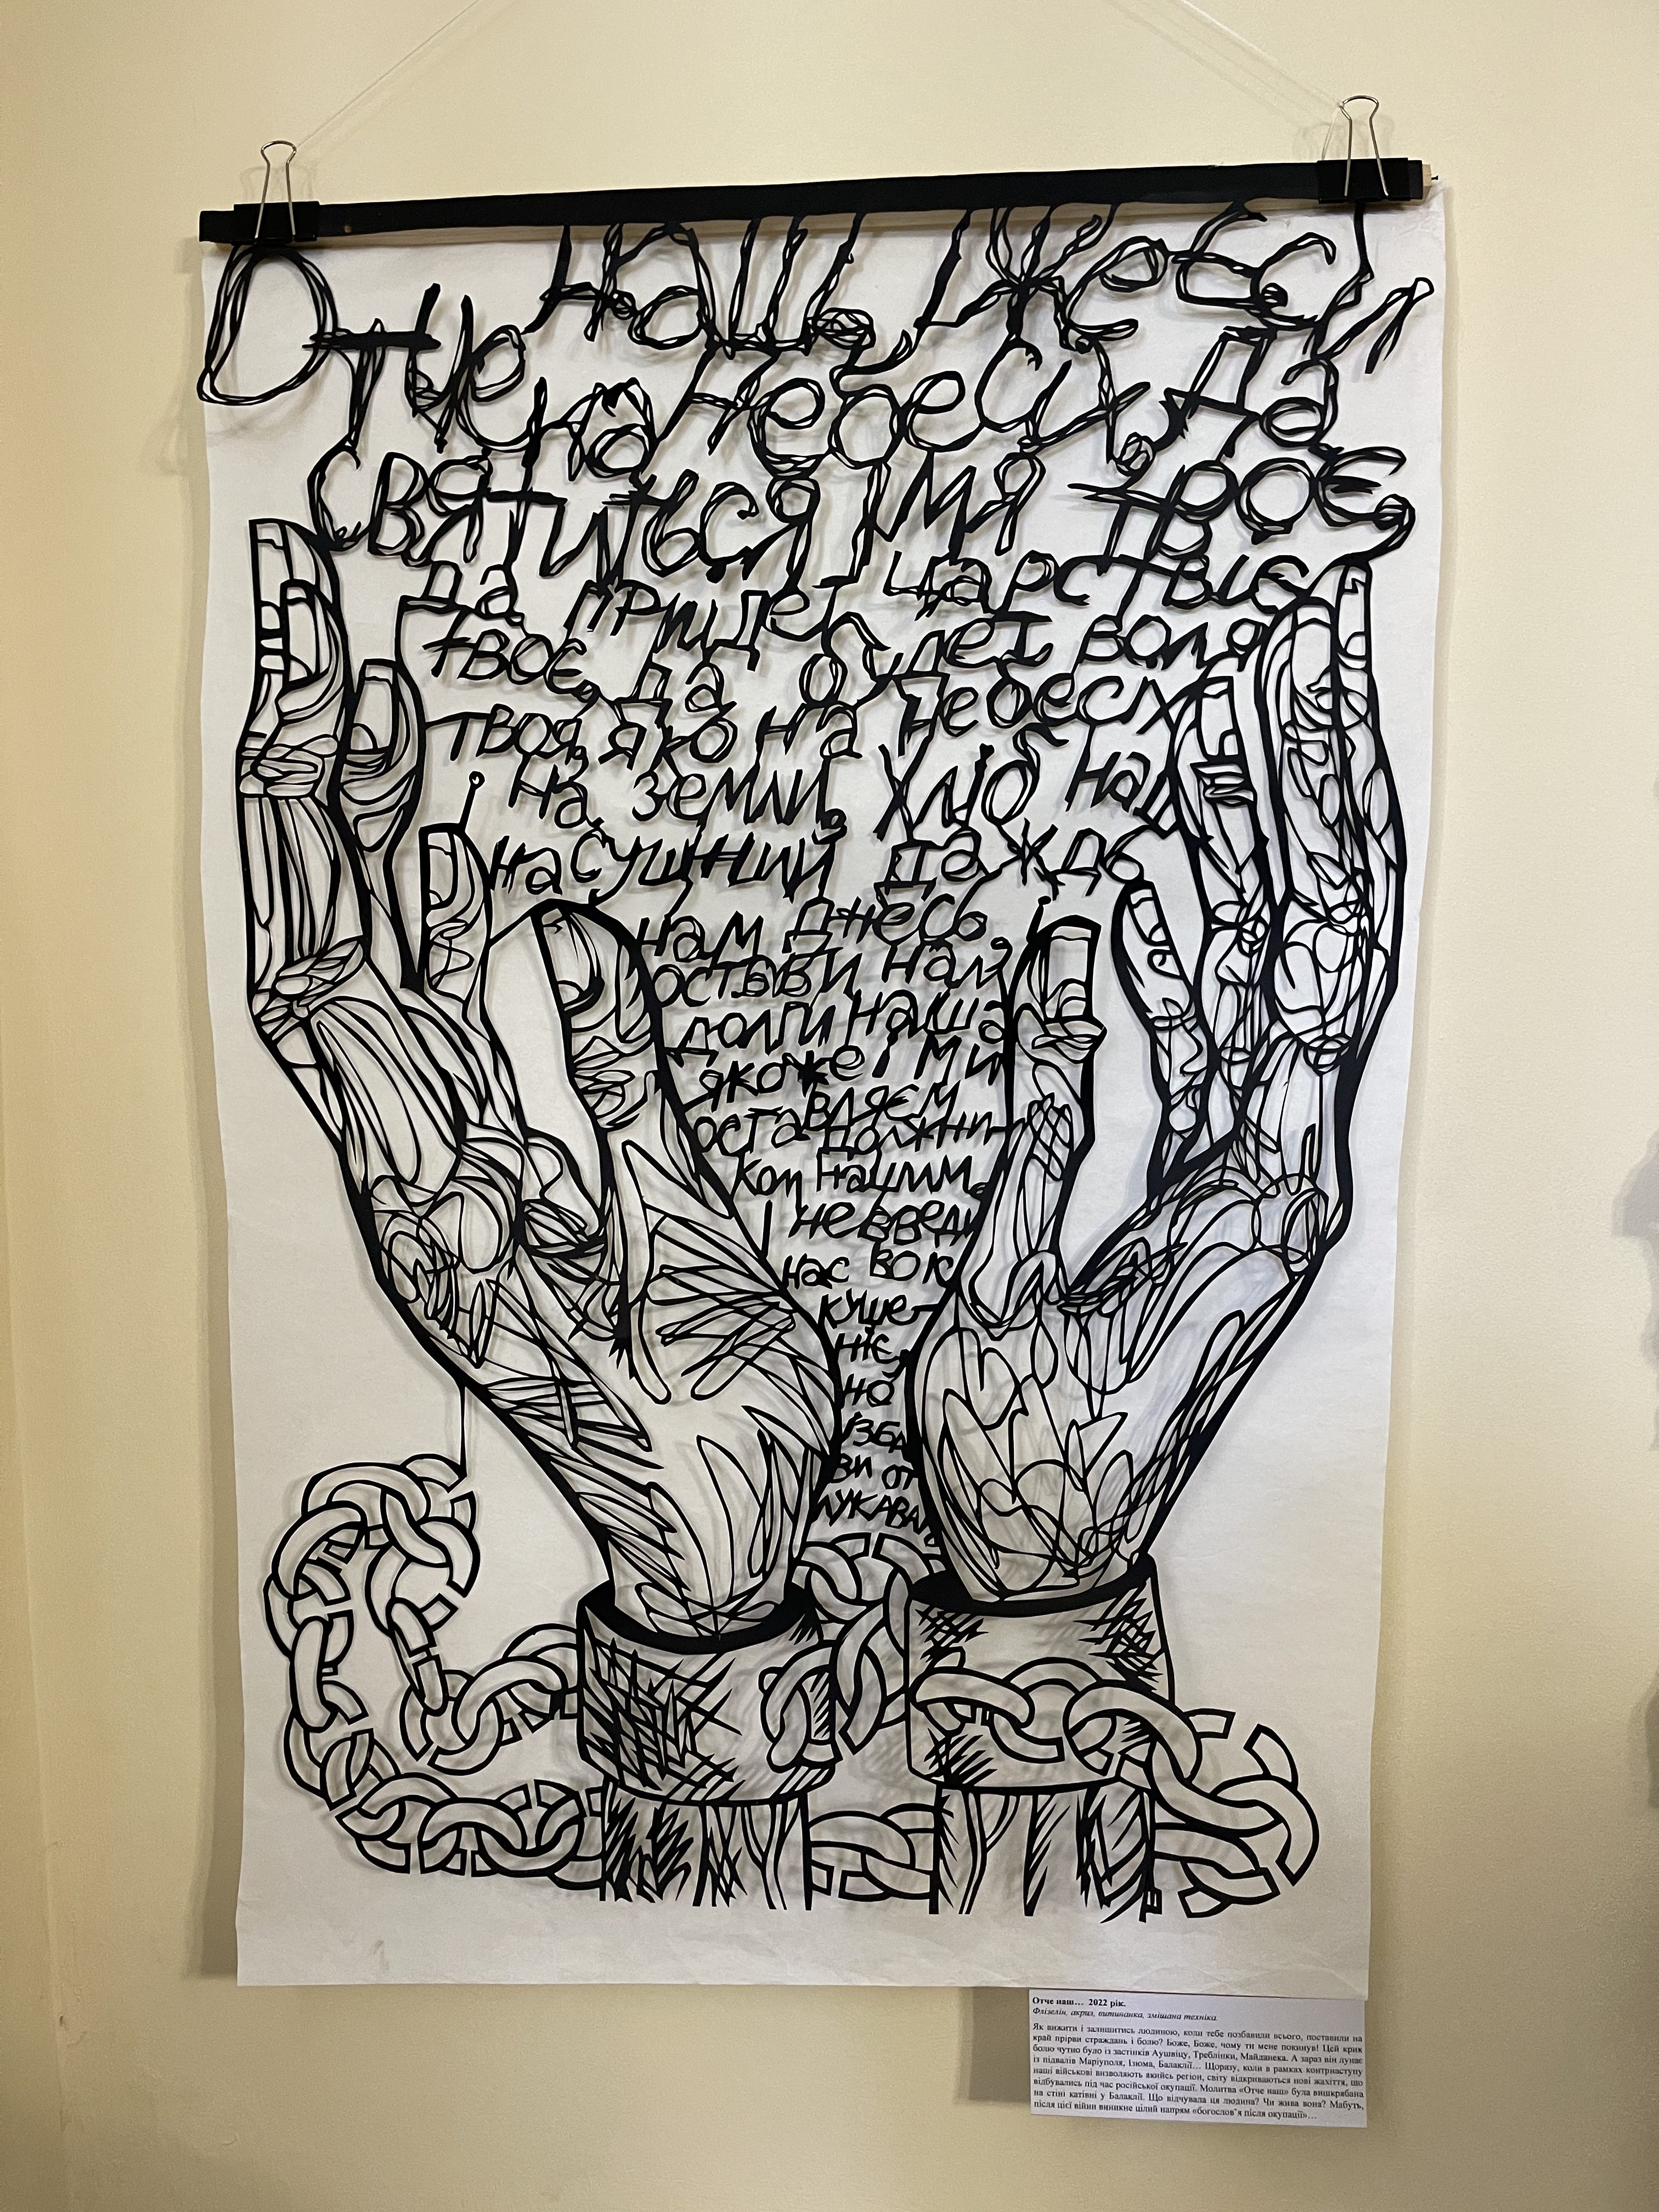 Отче наш, іжеєси
на небесіх, да
святиться імя твоє,
да прийдет царствіє
твоє, да будет воля
твоя, яко на небесх
на земли, хліб наш
насущний даждь
нам днесь,
остави нам
долги наша
якоже і ми
оставляєм
должни-
ком нашим,
і не введи
нас во іс
куше-
ніє,
но
ізба
ви от
лукаваго
Отче наш… 2022 рік.
Флізелін, акрил, витинанка, змішана техніка.
Як вижити і залишитись людиною, коли тебе позбавили всього, поставили на
край прірви страждань і болю? Боже, Боже, чому ти мене покинув! Цей крик
болю чутно було із застінків Аушвіцу, Треблінки, Майданека. А зараз він лунає
із підвалів Маріуполя, Ізюма, Балаклії… Щоразу, коли в рамках контрнаступу
наші військові визволяють якийсь регіон, світу відкриваються нові жахіття, що
відбувались під час російської окупації. Молитва «Отче наш» була вишкрябана
на стіні катівні у Балаклії. Що відчувала ця людина? Чи жива вона? Мабуть,
після цієї війни виникне цілий напрям «богослов'я після окупації»…